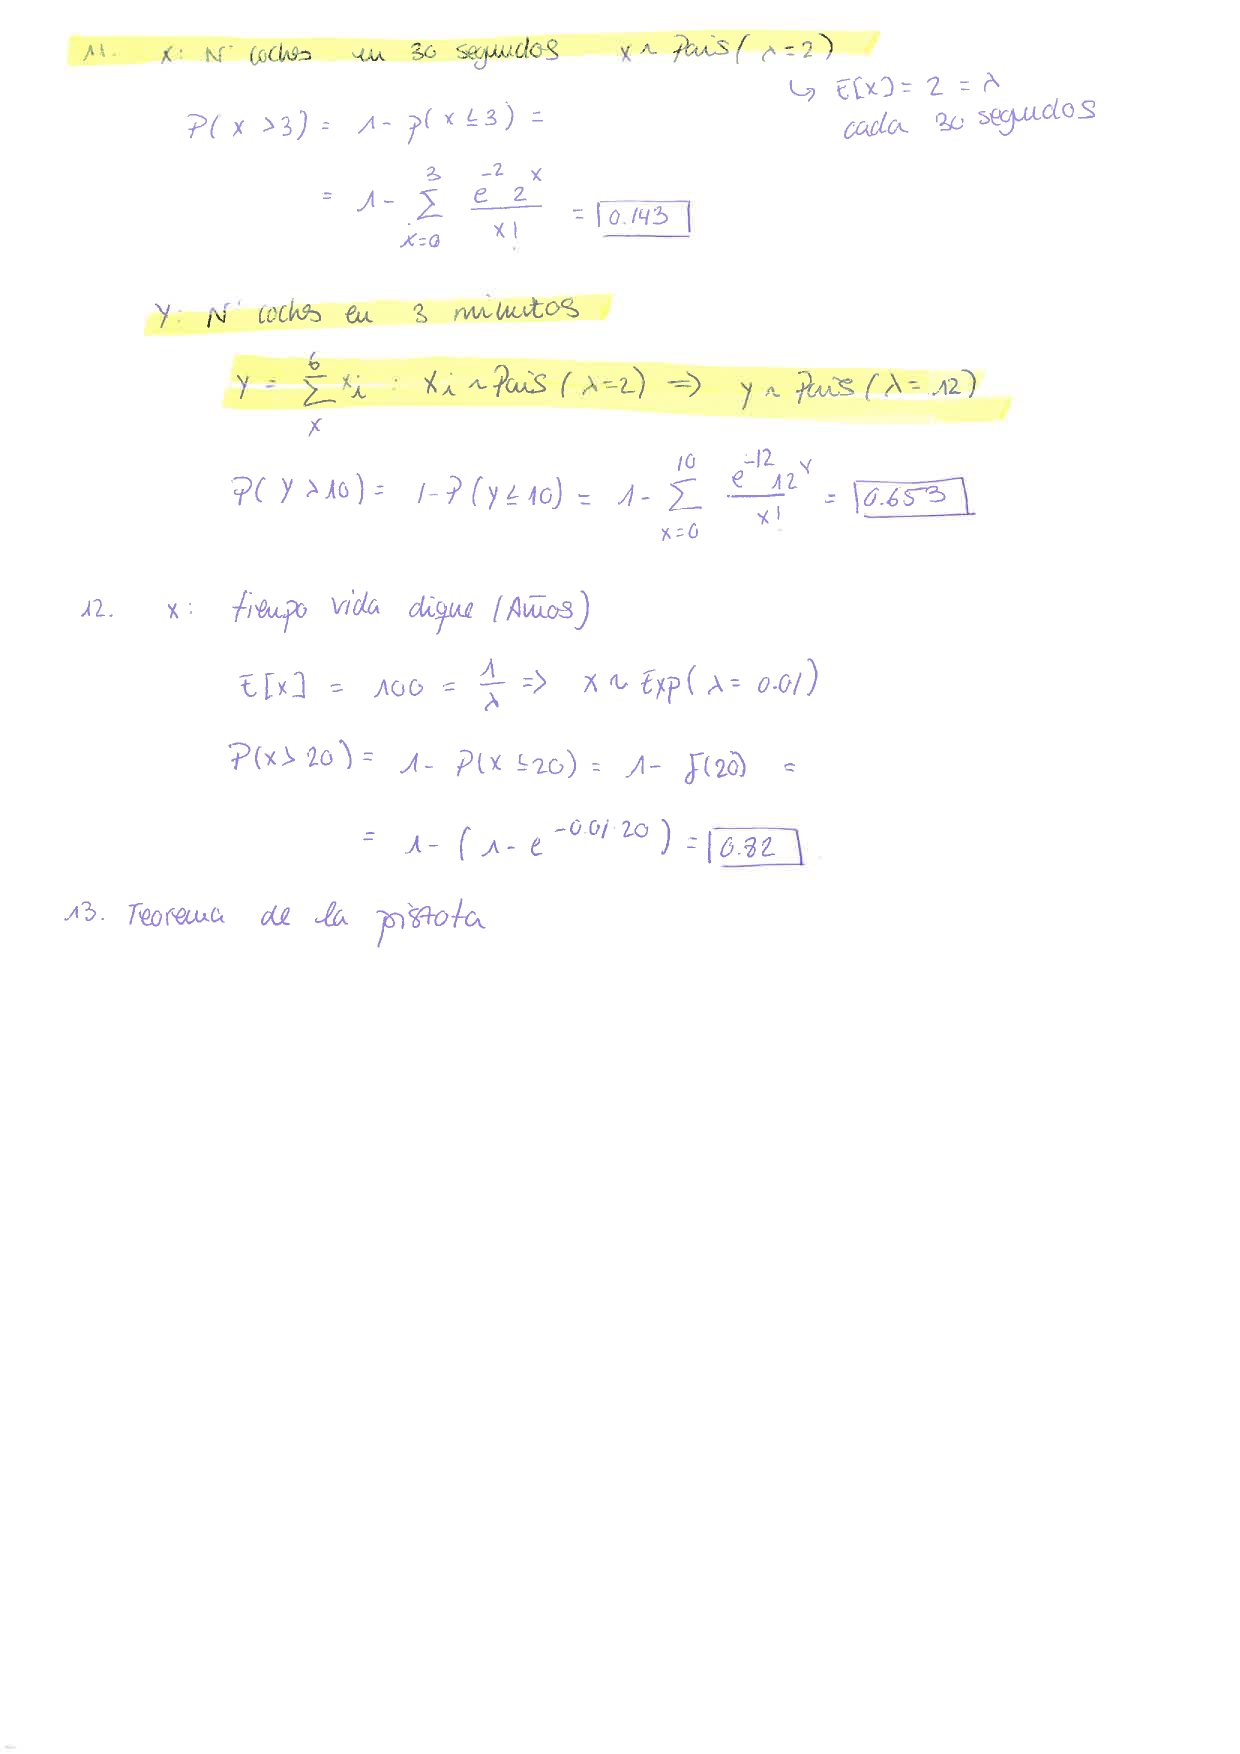 11. X: Nº coches en 30 segundos X ~ Pois(λ=2)
↳ E[X] = 2 = λ
cada 30 segundos
P(X>3) = 1- p(X≤3) =
= 1- ∑_{x=0}^{3} e^{-2} 2^x / x! = 0.143
Y: Nº coches en 3 minutos
Y = ∑_{x}^{6} Xi : Xi ~ Pois(λ=2) => Y ~ Pois(λ=12)
P(Y>10) = 1-P(Y≤10) = 1- ∑_{x=0}^{10} e^{-12} 12^Y / x! = 0.653
12. X: tiempo vida dique (Años)
E[X] = 100 = 1/λ => X ~ Exp(λ= 0.01)
P(X>20) = 1- P(X≤20) = 1- F(20) =
= 1- (1- e^{-0.01·20}) = 0.82
13. Teorema de la